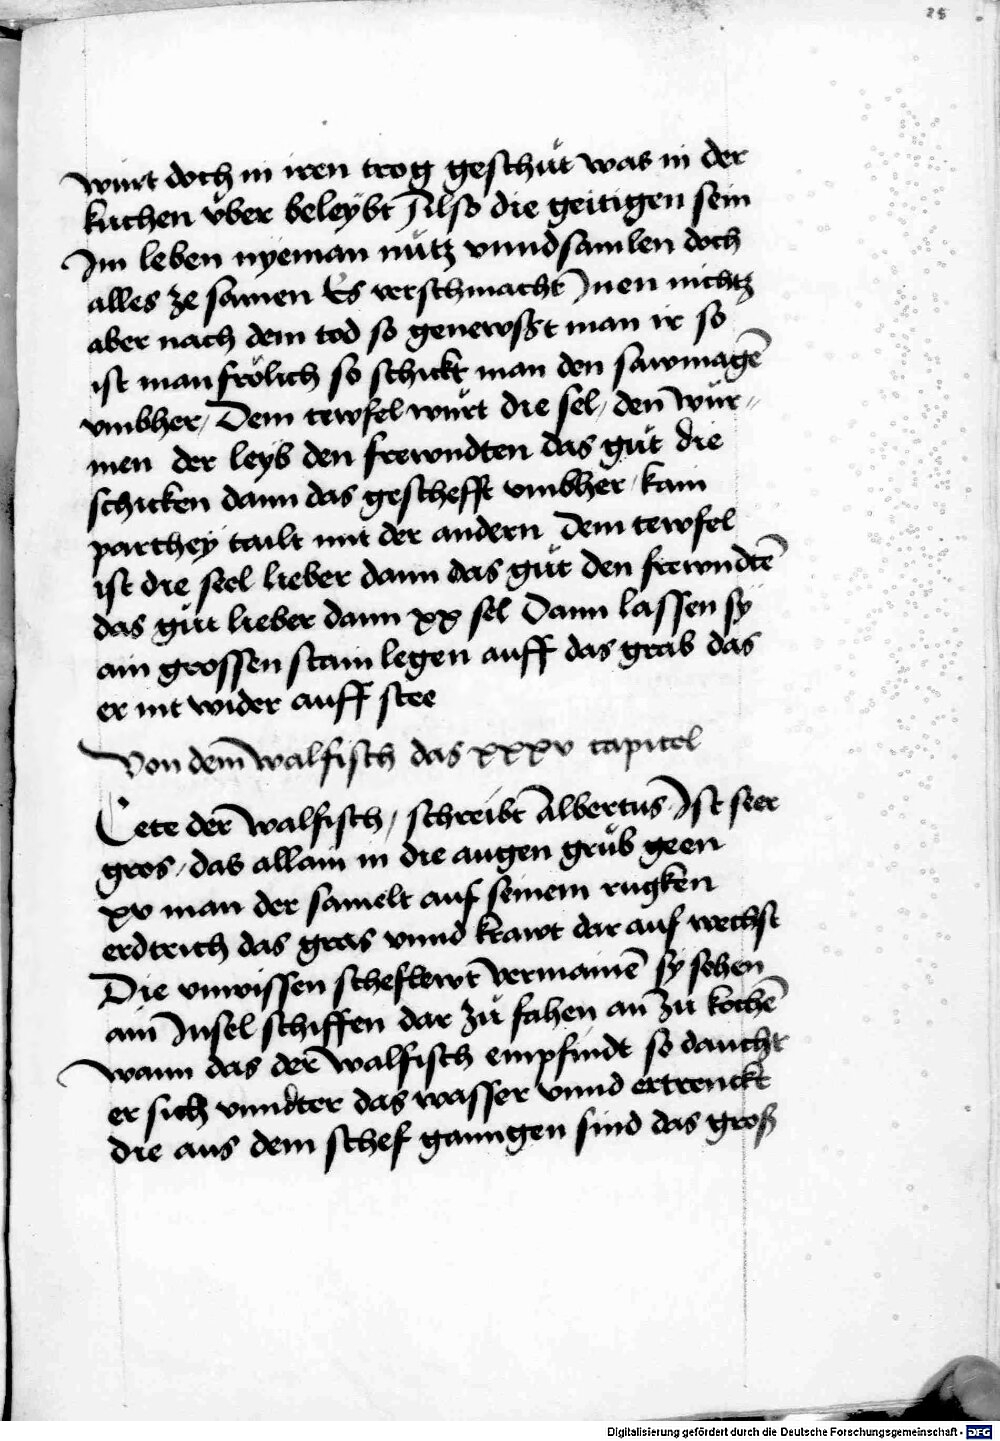 wurt doch in iren trog geschüt was in der
kuchen v̈ber beleybt Also die geitigen sein
Im leben nyeman nütz vnnd samlen doch
alles ze samen Es verschmacht Inen nichtz
aber nach dem tod so genewsst man ir so
ist man frölich so schickt man den sawmagē
vmbher / Dem tewfel würt die sel / den wür=
men der leyb den frewndten das gůt die
schicken dann das geschefft vmbher / kain
parthey tailt mit der andern Dem tewfel
ist die seel lieber dann das gůt den frewndtē
das gůt lieber dann xx sel Dann lassen sy
ain grossen stain legen auff das grab das
er nit wider auff stee
Von dem walfisch das xxxv capitel
Cete der walfisch / schreibt Albertus Ist seer
gros / das allain in die augen grůb geen
xv man der samelt auf seinem rugken
erdtrich das gras vnnd krawt dar auf wechst
Die vnwissen schefleẃt vermainē sy sehen
ain Insel schiffen dar zů fahen an zu kochē
wann das der walfisch empfindt so daucht
er sich vnndter das wasser vnnd ertrenckt
die aus dem schef ganngen sind das groß
28
Digitalisierung gefördert durch die Deutsche Forschungsgemeinschaft - DFG